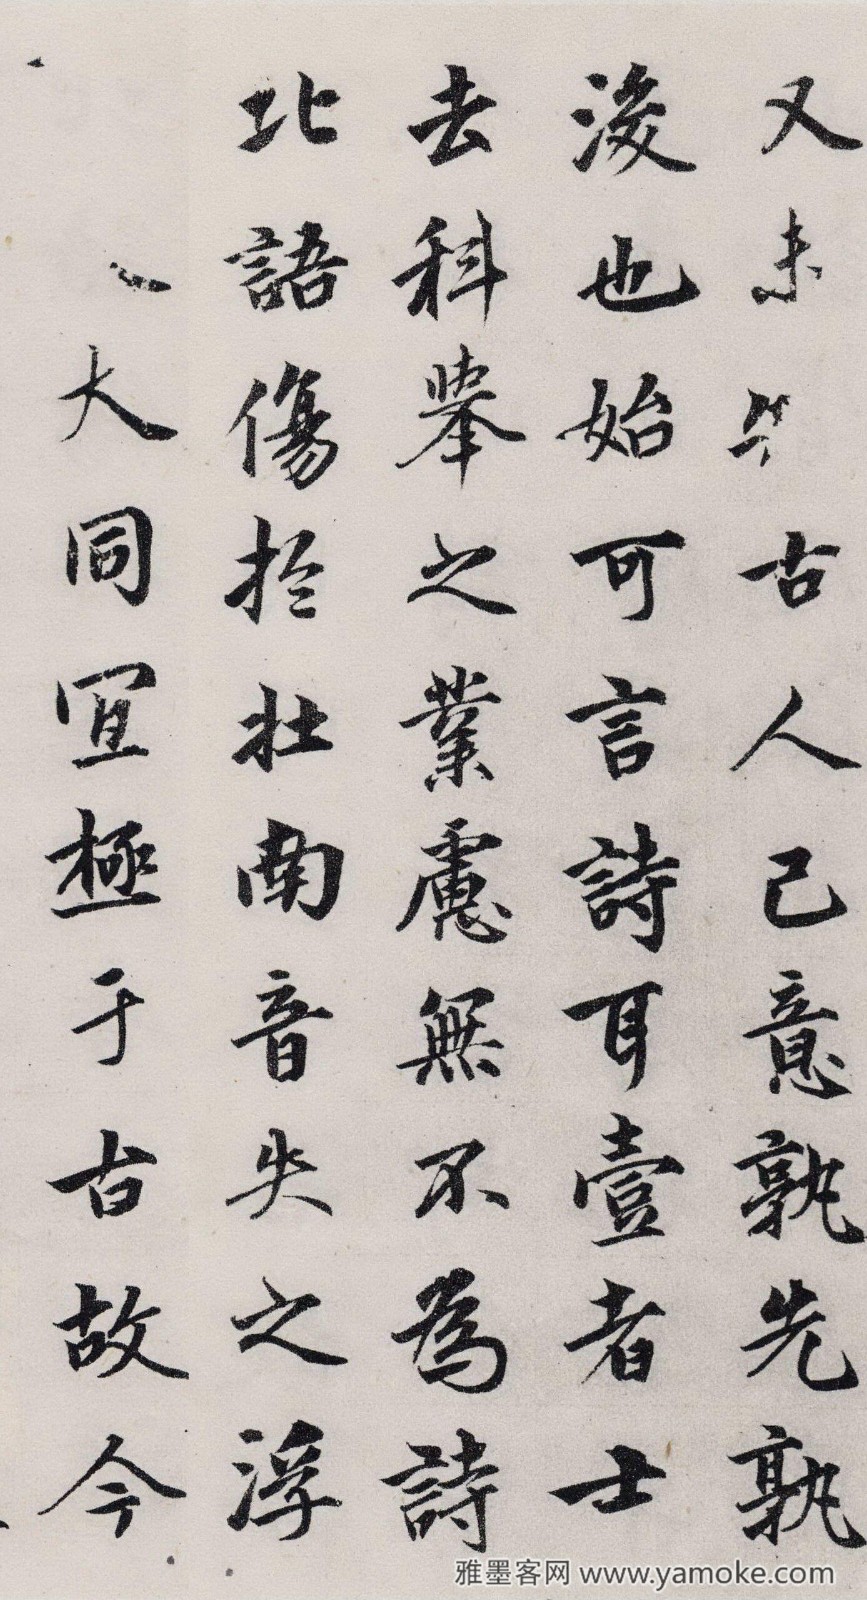 又未 古人己意孰先孰
後也始可言詩耳壹者士
去科舉之業慮無不為詩
北語傷於壯南音失之浮
大同宜極于古故今
雅墨客网 www.yamoke.com